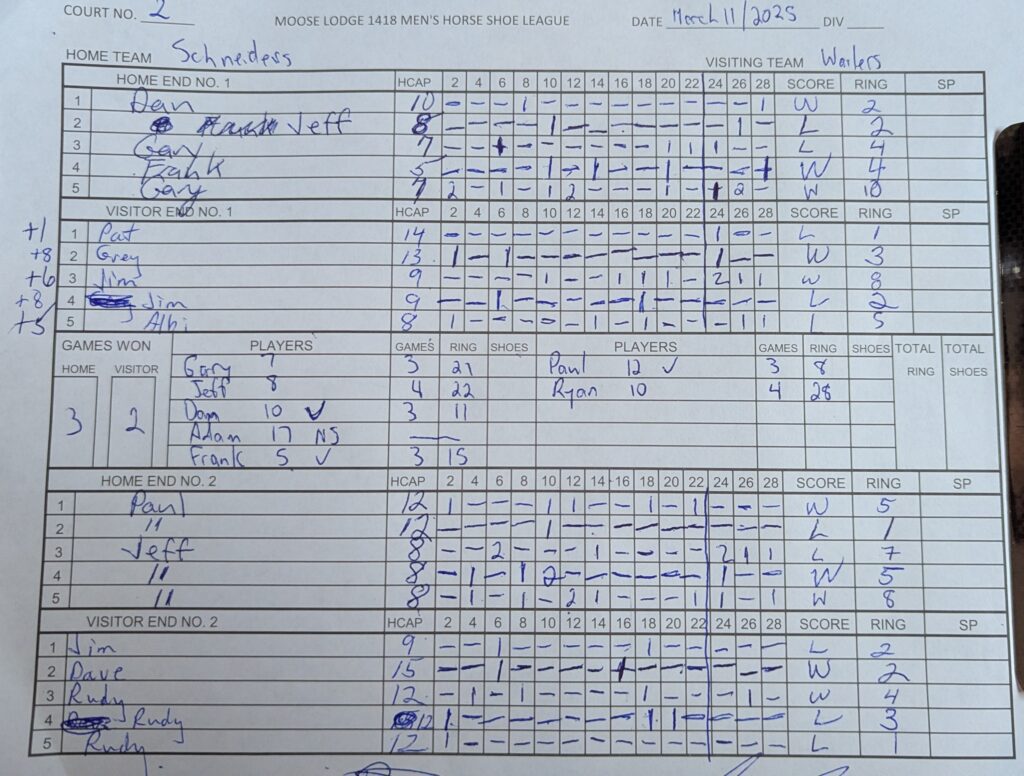 COURT NO. 2 MOOSE LODGE 1418 MEN'S HORSE SHOE LEAGUE DATE March 11/2025 DIV
HOME TEAM Schneiders VISITING TEAM Wailers
HOME END NO. 1 HCAP 2 4 6 8 10 12 14 16 18 20 22 24 26 28 SCORE RING SP
1 Dan 10 - - - 1 - - - - - - - - - 1 W 2
2 Jeff 8 - - - - 1 - - - - - - - 1 - L 2
3 Gary 7 - - 1 - - - - - - 1 1 1 - - L 4
4 Frank 5 - - - - 1 - 1 - - 1 - - - 1 W 4
5 Gary 7 2 - 1 - 1 2 - - - 1 - 1 2 - W 10
VISITOR END NO. 1 HCAP 2 4 6 8 10 12 14 16 18 20 22 24 26 28 SCORE RING SP
+1 1 Pat 14 - - - - - - - - - - - 1 - - L 1
+8 2 Greg 13 1 - 1 - - - - - - - - 1 - - W 3
+6 3 Jim 9 - - - - 1 - - 1 1 1 - 2 1 1 W 8
+8 4 Jim 9 - - 1 - - - - - 1 - - - - - L 2
+5 5 Albi 8 1 - - - - - 1 - 1 - - - 1 1 L 5
GAMES WON PLAYERS GAMES RING SHOES PLAYERS GAMES RING SHOES TOTAL RING TOTAL SHOES
HOME VISITOR
3 2
Gary 7 3 21 Paul 12 ✓ 3 8
Jeff 8 4 22 Ryan 10 4 28
Dan 10 ✓ 3 11
Adam 17 NS —
Frank 5 ✓ 3 15
HOME END NO. 2 HCAP 2 4 6 8 10 12 14 16 18 20 22 24 26 28 SCORE RING SP
1 Paul 12 1 - - - 1 1 - - 1 - 1 - - - W 5
2 " 12 - - - - 1 - - - - - - - - - L 1
3 Jeff 8 - - 2 - - - 1 - - - - 2 1 1 L 7
4 " 8 - 1 - 1 2 - - - - - - 1 - - W 5
5 " 8 - 1 - 1 - 2 1 - - - 1 1 - 1 W 8
VISITOR END NO. 2 HCAP 2 4 6 8 10 12 14 16 18 20 22 24 26 28 SCORE RING SP
1 Jim 9 - - 1 - - - - - 1 - - - - - L 2
2 Dave 15 - - 1 - - - - 1 - - - - - - W 2
3 Rudy 12 - 1 - 1 - - - - 1 - - - 1 - W 4
4 Rudy 12 1 - - - - - - - 1 1 - - - - L 3
5 Rudy 12 1 - - - - - - - - - - - - - L 1